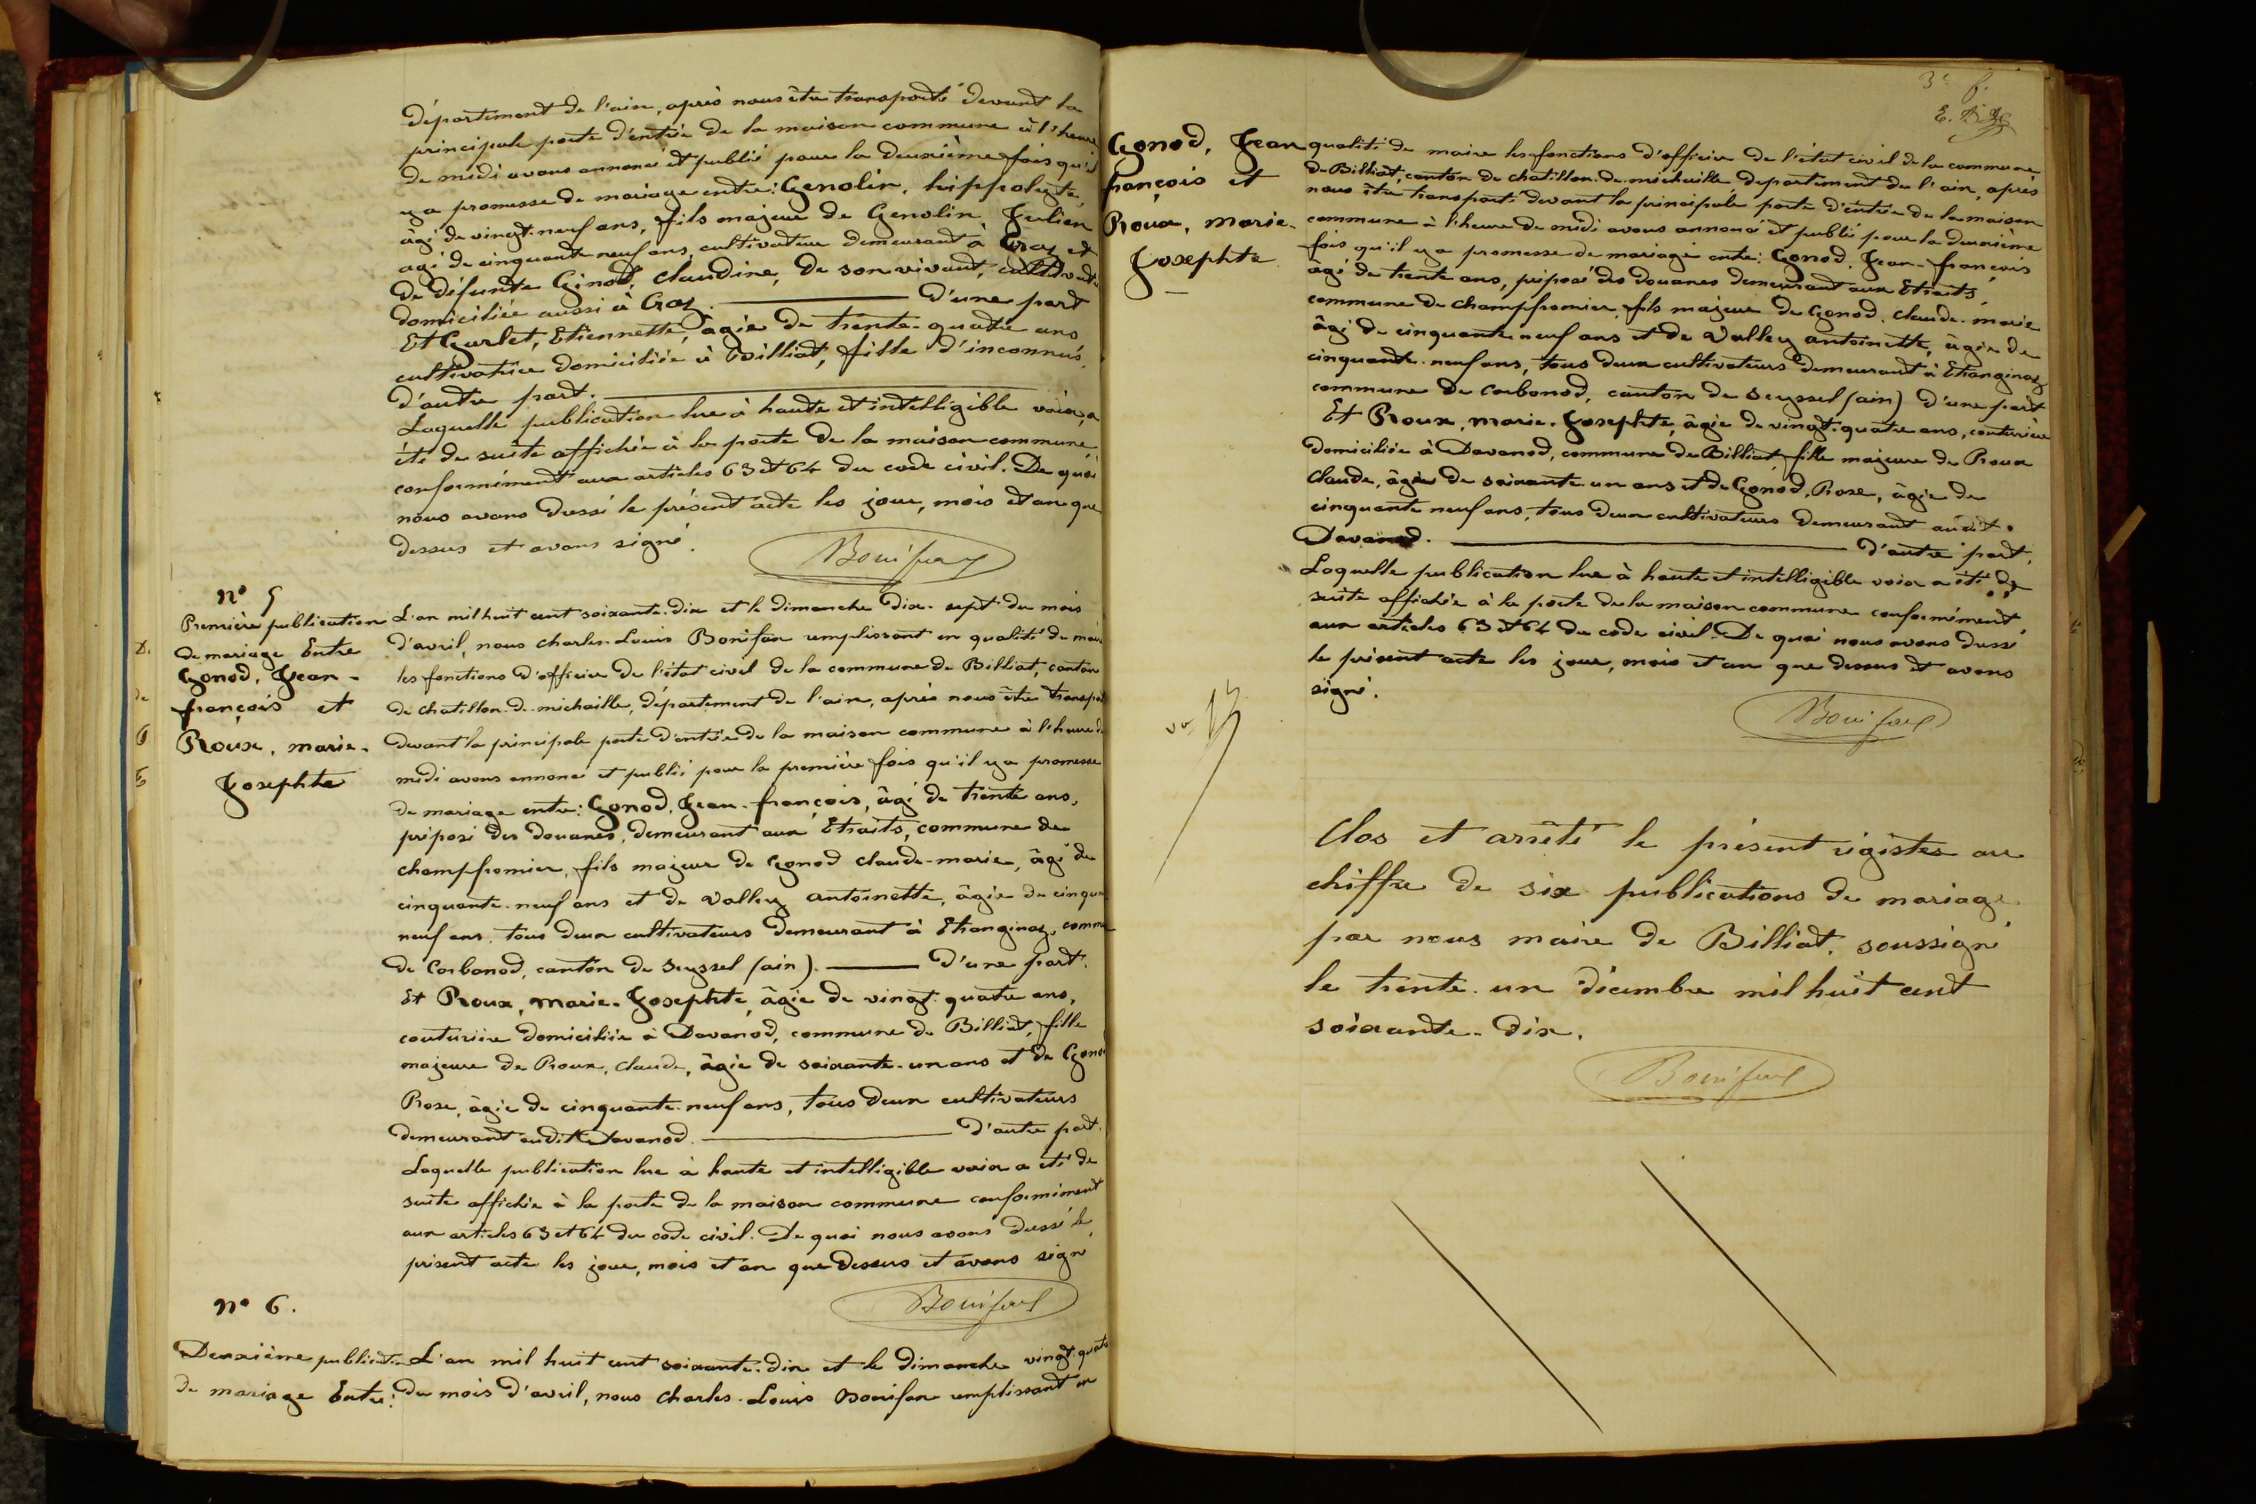 département de l'ain, après nous être transporté devant la
principale porte d'entrée de la maison commune à l'heure
de midi avons annoncé et publié pour la deuxième fois qu'il
y a promesse de mariage entre: Genolin, hippolyte,
âgé de vingt-neuf ans, fils majeur de Genolin Julien
agé de cinquante neuf ans, cultivateur demeurant à Craz et
de défunte Ginod, Claudine, de son vivant, cultivatri
domiciliée aussi à Craz. d'une part
Et Gurlet, Etiennette, âgée de trente-quatre ans
cultivatrice domiciliée à Billiat, fille d'inconnus,
d'autre part.
Laquelle publication lue à haute et intelligible voix, a
été de suite affichée à la porte de la maison commune
conformément aux articles 63 et 64 du code civil. De quoi
nous avons dressé le présent acte les jour, mois et an que
dessus et avons signé.
Bonifax
n° 5
Première publication
de mariage Entre
Gonod, Jean-
françois et
Roux, marie-
Josephte
L'an mil huit cent soixante-dix et le dimanche dix-sept du mois
d'avril, nous charles-Louis Bonifax remplissant en qualité de maire
les fonctions d'officier de l'état civil de la commune de Billiat, canton
de chatillon-de-michaille, département de l'ain, après nous être transpor
devant la principale porte d'entrée de la maison commune à l'heure de
midi avons annoncé et publié pour la première fois qu'il y a promesse
de mariage entre: Gonod, Jean-françois, âgé de trente ans,
préposé des douanes, demeurant aux Etraits, commune de
champfromier, fils majeur de Gonod claude-marie, âgé de
cinquante-neuf ans et de Vallley antoinette, âgée de cinquan
neuf ans, tous deux cultivateurs demeurant à Etranginaz, commu
de Corbonod, canton de Seyssel (ain). d'une part.
Et Roux, marie-Josephte, âgée de vingt-quatre ans,
couturière domiciliée à Davanod, commune de Billiat, fille
majeure de Roux, claude, âgée de soixante-un ans et de Gonod
Rose, âgée de cinquante-neuf ans, tous deux cultivateurs
demeurant audit Davanod. d'autre part.
Laquelle publication lue à haute et intelligible voix a été de
suite affichée à la porte de la maison commune conformément
aux articles 63 et 64 du code civil. De quoi nous avons dressé le
présent acte les jour, mois et an que dessus et avons signé
Bonifax
n° 6.
Deuxième publication
de mariage Entre:
L'an mil huit cent soixante-dix et le dimanche vingt-quatre
du mois d'avril, nous charles-Louis Bonifax remplissant en
3e f.
Gonod, Jean
françois et
Roux, marie-
Josephte
qualité de maire les fonctions d'officier de l'état civil de la commune
de Billiat, canton de chatillon-de-michaille departement de l'ain, après
nous être transporté devant la principale porte d'entrée de la maison
commune à l'heure de midi avons annoncé et publié pour la deuxième
fois qu'il y a promesse de mariage entre: Gonod, Jean-françois
âgé de trente ans, préposé des douanes demeurant aux Etraits,
commune de champfromier, fils majeur de Gonod, claude-marie
âgé de cinquante-neuf ans et de Valley antoinette, âgée de
cinquante-neuf ans, tous deux cultivateurs demeurant à Etranginaz
commune de Corbonod, canton de Seyssel (ain) d'une part
Et Roux, marie-Josephte, âgée de vingt-quatre ans, couturière
domiciliée à Davanod, commune de Billiat, fille majeure de Roux
Claude, âgée de soixante-un ans et de Gonod, Rose, âgée de
cinquante neuf ans, tous deux cultivateurs demeurant audit
Davanod. d'autre part,
Laquelle publication lue à haute et intelligible voix a été de
suite affichée à la porte de la maison commune conformément
aux articles 63 et 64 du code civil. De quoi nous avons dressé
le présent acte les jour, mois et an que dessus et avons
signé.
Bonifax
Clos et arrêté le présent régistre au
chiffre de six publications de mariage
par nous maire de Billiat, soussigné
le trente-un décembre mil huit cent
soixante-dix.
Bonifax